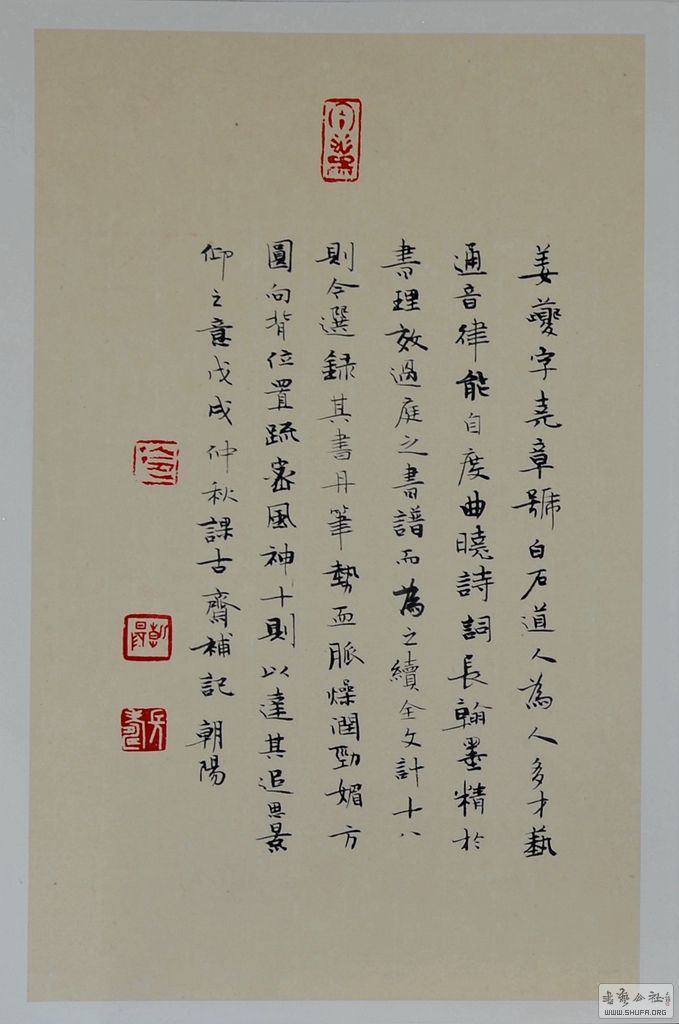 姜夔字堯章號白石道人為人多才藝
通音律能自度曲曉詩詞長翰墨精於
書理效過庭之書譜而為之續全文計十八
則今選録其書丹筆勢血脈燥潤勁媚方
圓向背位置疏密風神十則以達其追思景
仰之意戊戌仲秋課古齋補記朝陽
書藝公社
WWW.SHUFA.ORG